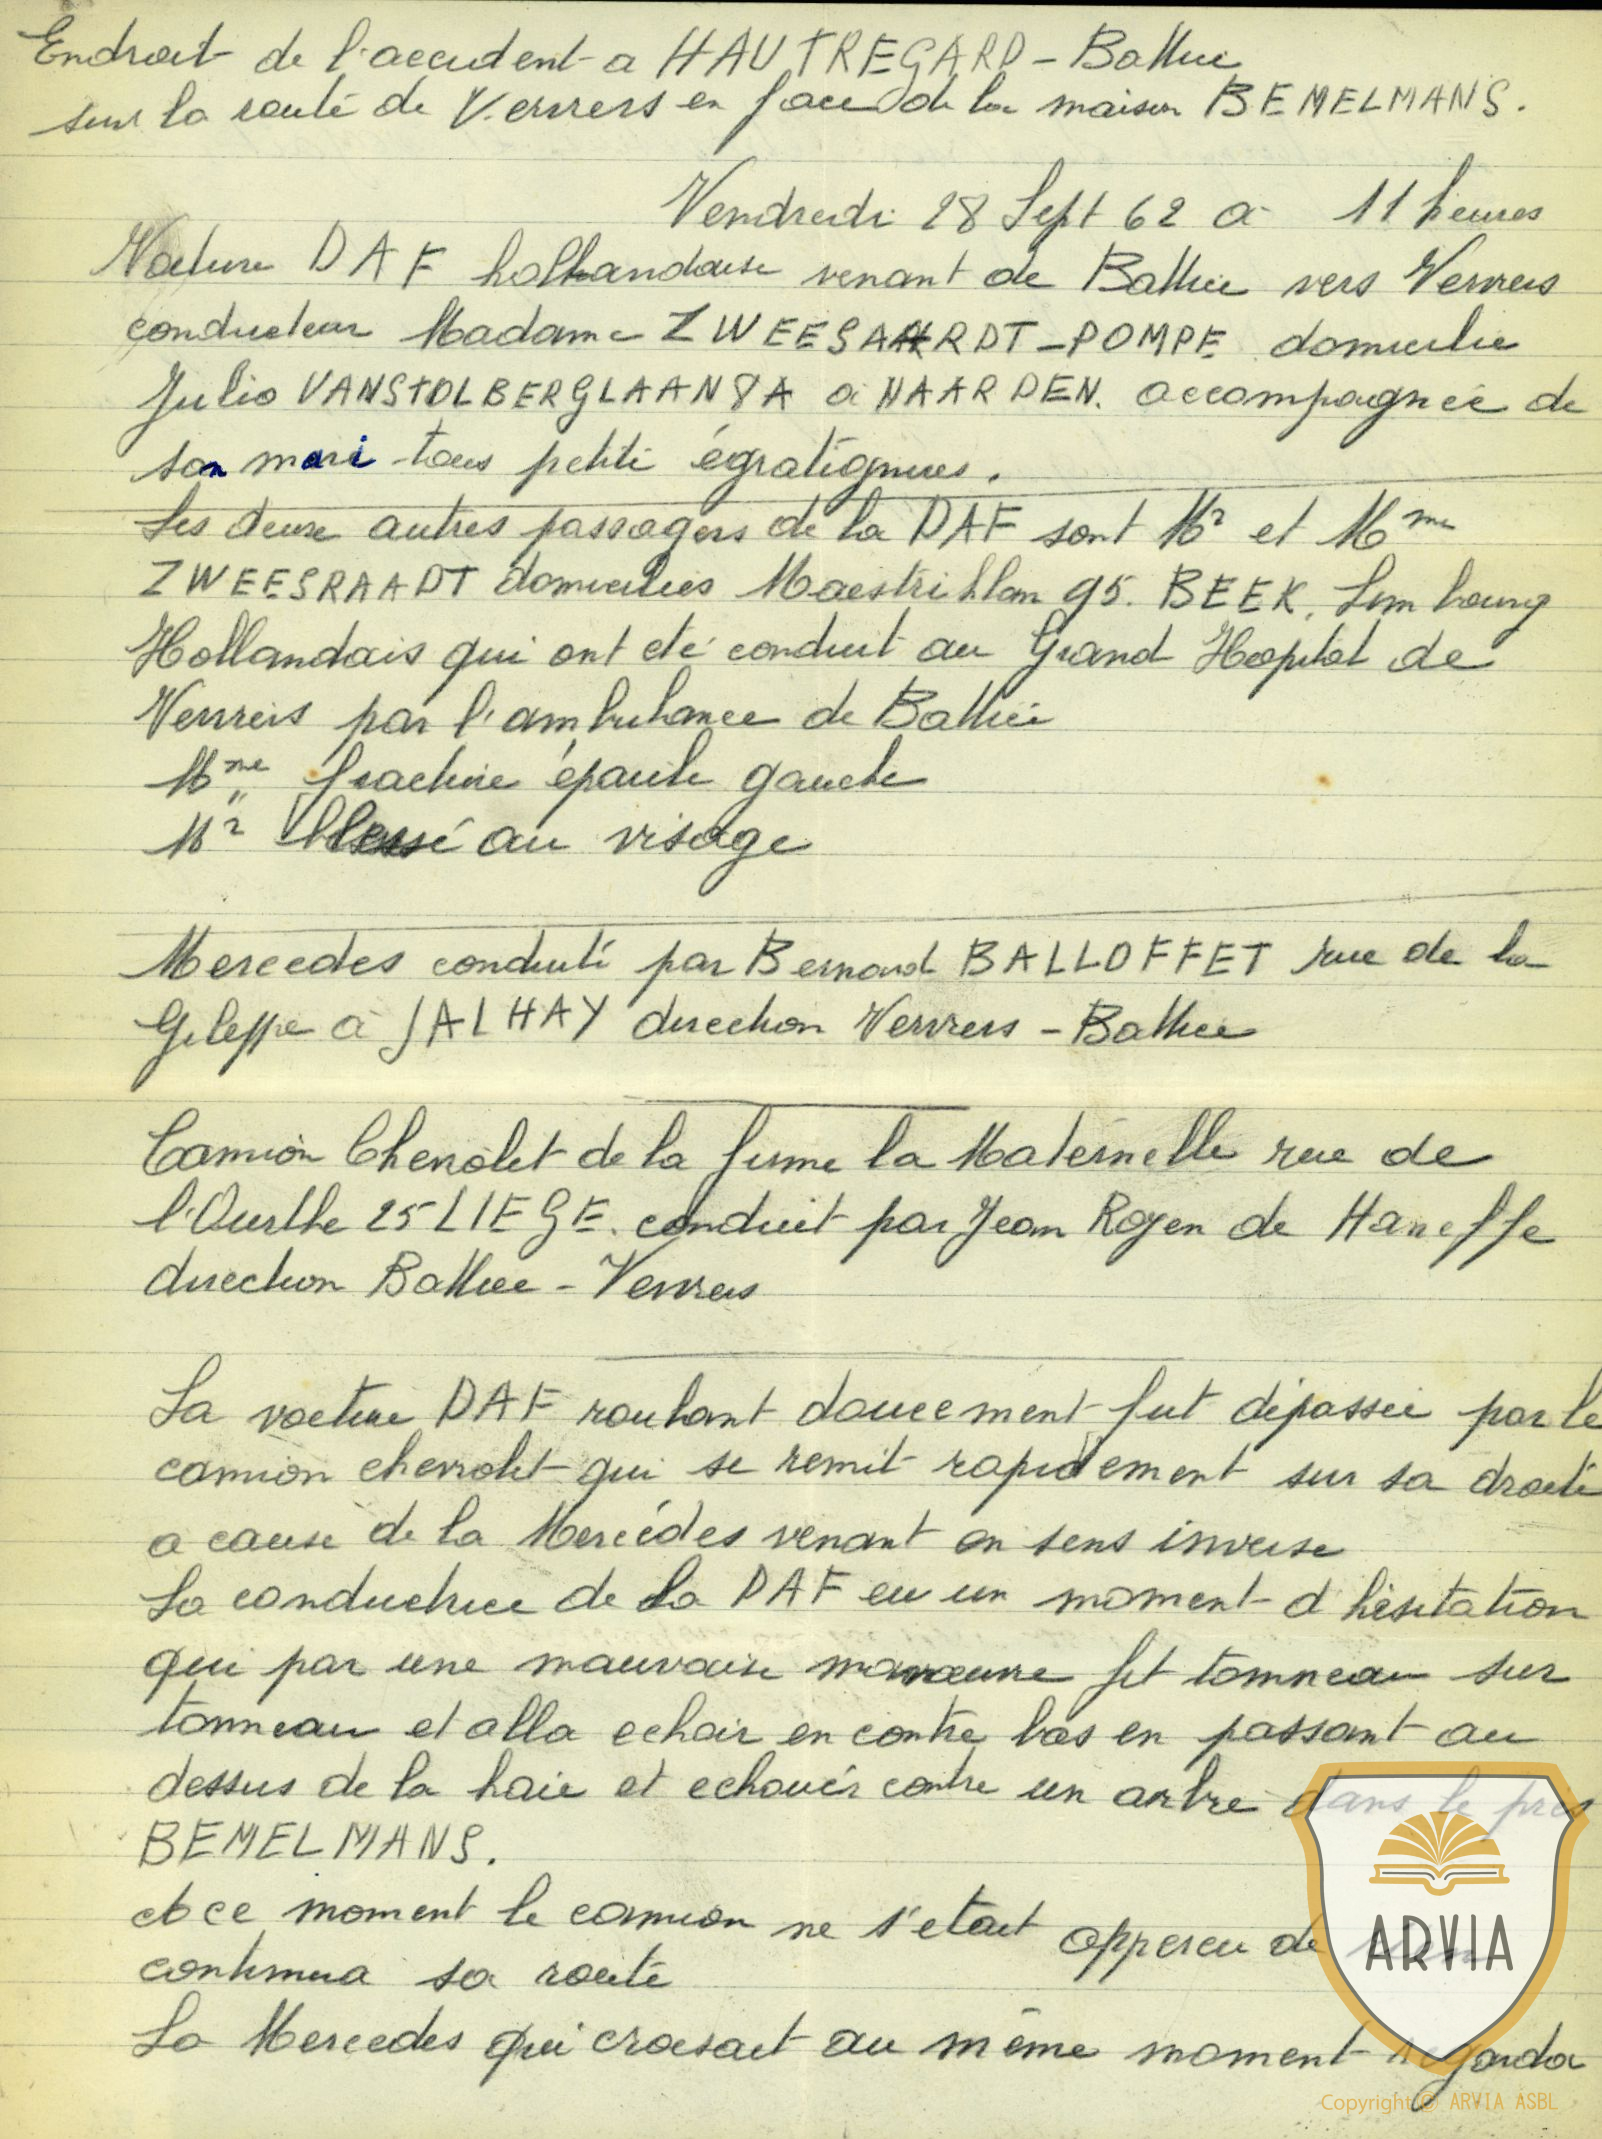 Endroit de l'accident a HAUTREGARD - Battice
sur la route de Verviers en face de la maison BEMELMANS.
Vendredi 28 Sept 62 a 11 heures
Voiture DAF hollandaise venant de Battice vers Verviers
conducteur Madame ZWEESAARDT-POMPE domicilie
Julio VANSTOLBERGLAAN 8A à NAARDEN. accompagnée de
son mari tous petite égratignures.
Les deux autres passagers de la DAF sont Mr et Mme
ZWEESRAADT domiciliés Maestrichlan 95. BEEK. Limbourg
Hollandais qui ont eté conduit au Grand Hopital de
Verviers par l'ambulance de Battice
Mme fracture épaule gauche
Mr blessé au visage
Mercedes conduite par Bernard BALLOFFET rue de la
Gileppe à JALHAY direction Verviers - Battice
Camion Chevrolet de la firme la Maternelle rue de
l'Ourthe 25 LIEGE. conduit par Jean Royen de Haneffe
direction Battice - Verviers
La voiture DAF roulant doucement fut dépassée par le
camion chevrolet qui se remit rapidement sur sa droite
a cause de la Mercédes venant en sens inverse
La conductrice de la DAF eu un moment d'hésitation
qui par une mauvaise manœuvre fit tonneau sur
tonneau et alla echoir en contre bas en passant au
dessus de la haie et echouér contre un arbre dans le prés
BEMELMANS.
A ce moment le camion ne s'etait appercu de rien
continua sa route
La Mercedes qui croisait au même moment regarda
ARVIA
Copyright © ARVIA ASBL